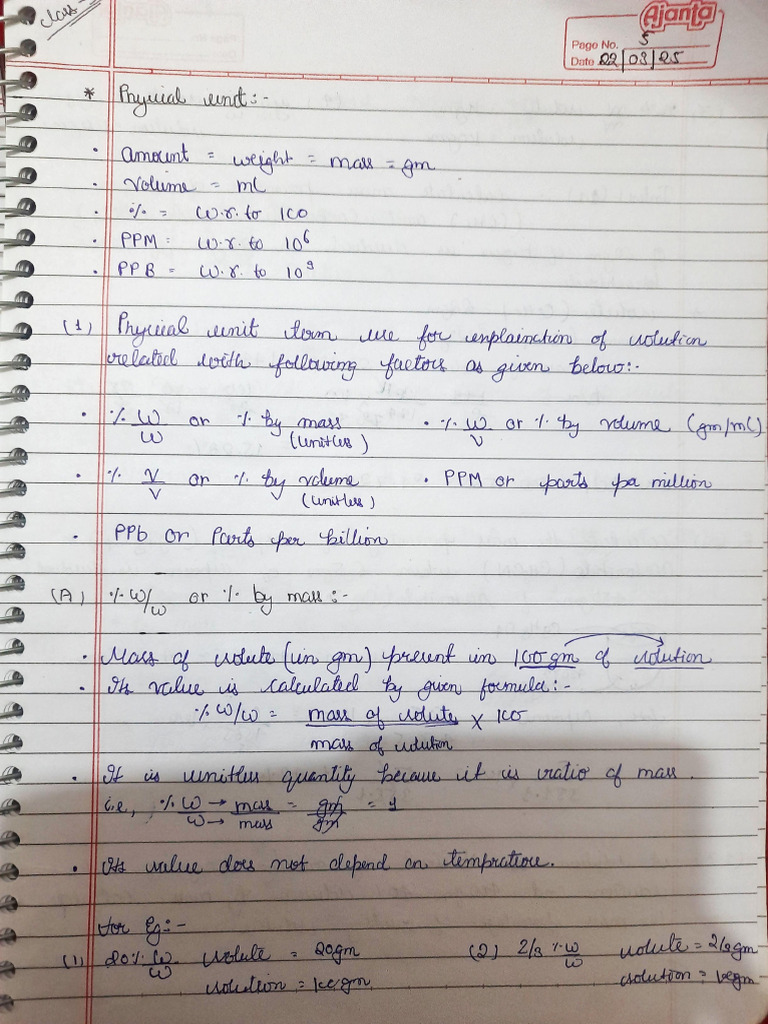 class
Ajanta
Page No. 5
Date 02/03/25
* Physical unit:-
· amount = weight = mass = gm
· Volume = ml
· % = w.r. to 100
· PPM = w.r. to 10⁶
· PPB = w.r. to 10⁹
(1) Physical unit term use for explainction of solution
related with following factors as given below:-
· % W/W or % by mass (unitless) · % W/V or % by volume (gm/ml)
· % V/V or % by volume (unitless) · PPM or parts per million
· PPb or Parts per billion
(A) % W/W or % by mass:-
· Mass of solute (in gm) present in 100gm of solution
· Its value is calculated by given formula:-
% W/W = mass of solute / mass of solution × 100
· It is unitless quantity because it is ratio of mass.
i.e, % W/W → mass / → mass = gm/gm = 1
· Its value does not depend on temprature.
for Eg:-
(1) 20% W/W solute = 20gm (2) 2/3 % W/W solute = 2/3gm
solution = 100gm solution = 100gm